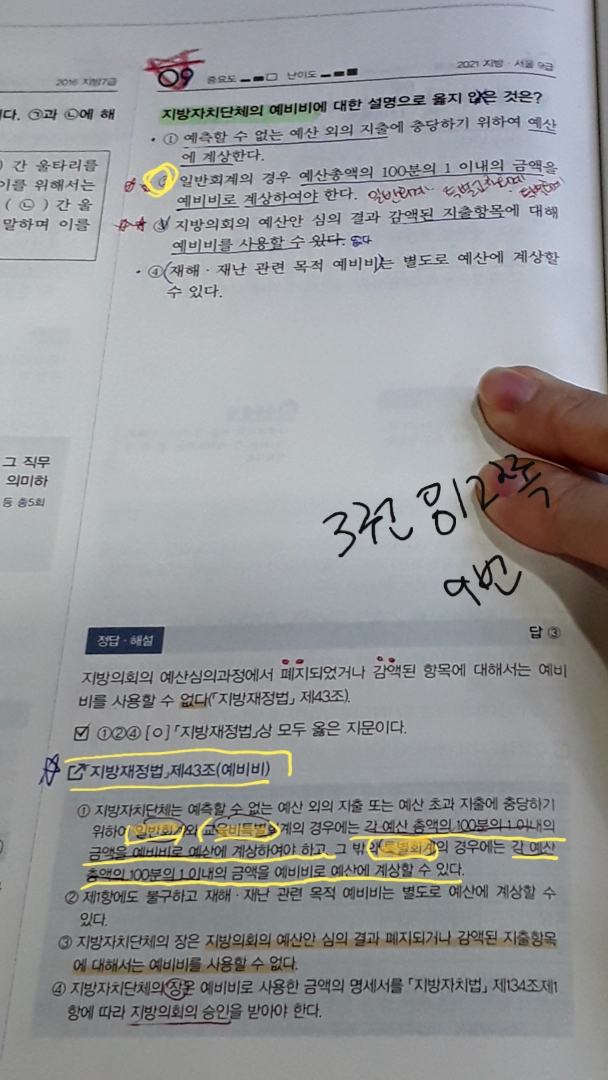 2016 지방7급
다. ㉠과 ㉡에 해
) 간 울타리를
이를 위해서는
( ㉡ ) 간 울
말하며 이를
그 직무
의미하
등 총5회
09 중요도 난이도 2021 지방·서울 9급
지방자치단체의 예비비에 대한 설명으로 옳지 않은 것은?
① 예측할 수 없는 예산 외의 지출에 충당하기 위하여 예산
에 계상한다.
② 일반회계의 경우 예산총액의 100분의 1 이내의 금액을
예비비로 계상하여야 한다.
③ 지방의회의 예산안 심의 결과 감액된 지출항목에 대해
예비비를 사용할 수 있다. 없다
④ 재해·재난 관련 목적 예비비는 별도로 예산에 계상할
수 있다.
3권 812쪽
9번
정답·해설 답 ③
지방의회의 예산심의과정에서 폐지되었거나 감액된 항목에 대해서는 예비
비를 사용할 수 없다(「지방재정법」 제43조).
①②④ [○] 「지방재정법」상 모두 옳은 지문이다.
「지방재정법」 제43조(예비비)
① 지방자치단체는 예측할 수 없는 예산 외의 지출 또는 예산 초과 지출에 충당하기
위하여 일반회계와 교육비특별회계의 경우에는 각 예산 총액의 100분의 1 이내의
금액을 예비비로 예산에 계상하여야 하고, 그 밖의 특별회계의 경우에는 각 예산
총액의 100분의 1 이내의 금액을 예비비로 예산에 계상할 수 있다.
② 제1항에도 불구하고 재해·재난 관련 목적 예비비는 별도로 예산에 계상할 수
있다.
③ 지방자치단체의 장은 지방의회의 예산안 심의 결과 폐지되거나 감액된 지출항목
에 대해서는 예비비를 사용할 수 없다.
④ 지방자치단체의 장은 예비비로 사용한 금액의 명세서를 「지방자치법」 제134조제1
항에 따라 지방의회의 승인을 받아야 한다.